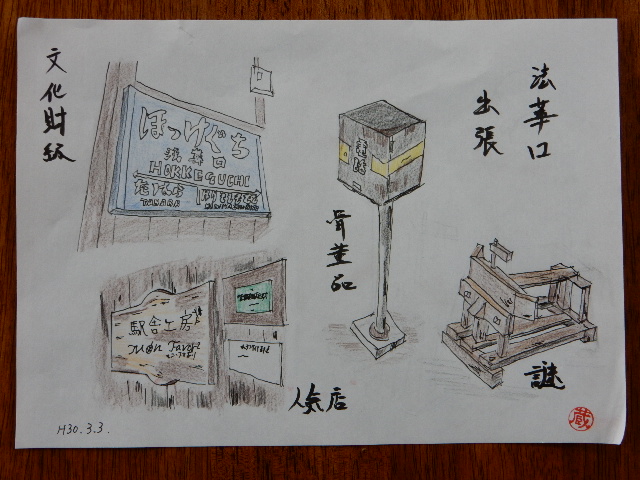 法華口
出張
文化財級
ほっけぐち
法華口
HOKKEGUCHI
TAHARA
電話
骨董品
駅舎工房
Mon Favori
人気店
謎
H30.3.3.
蔵